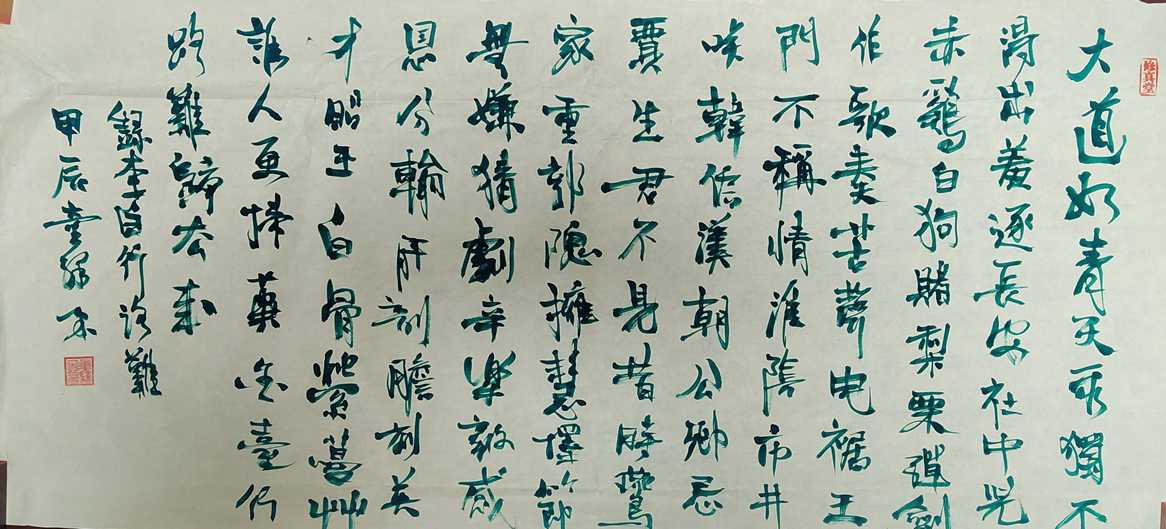 修真堂
大道如青天我獨不
得出羞逐長安社中兒
赤鷄白狗賭梨栗彈劍
作歌奏苦聲曳裾王
門不稱情淮陰市井
笑韓信漢朝公卿忌
賈生君不見昔時鷰
家重郭隗擁慧擇節
無嫌猜劇辛樂毅感
恩分輸肝剖膽効英
才昭王白骨縈蔓艸
誰人更掃黃金臺行
路難歸去來
錄李白行路難
甲辰